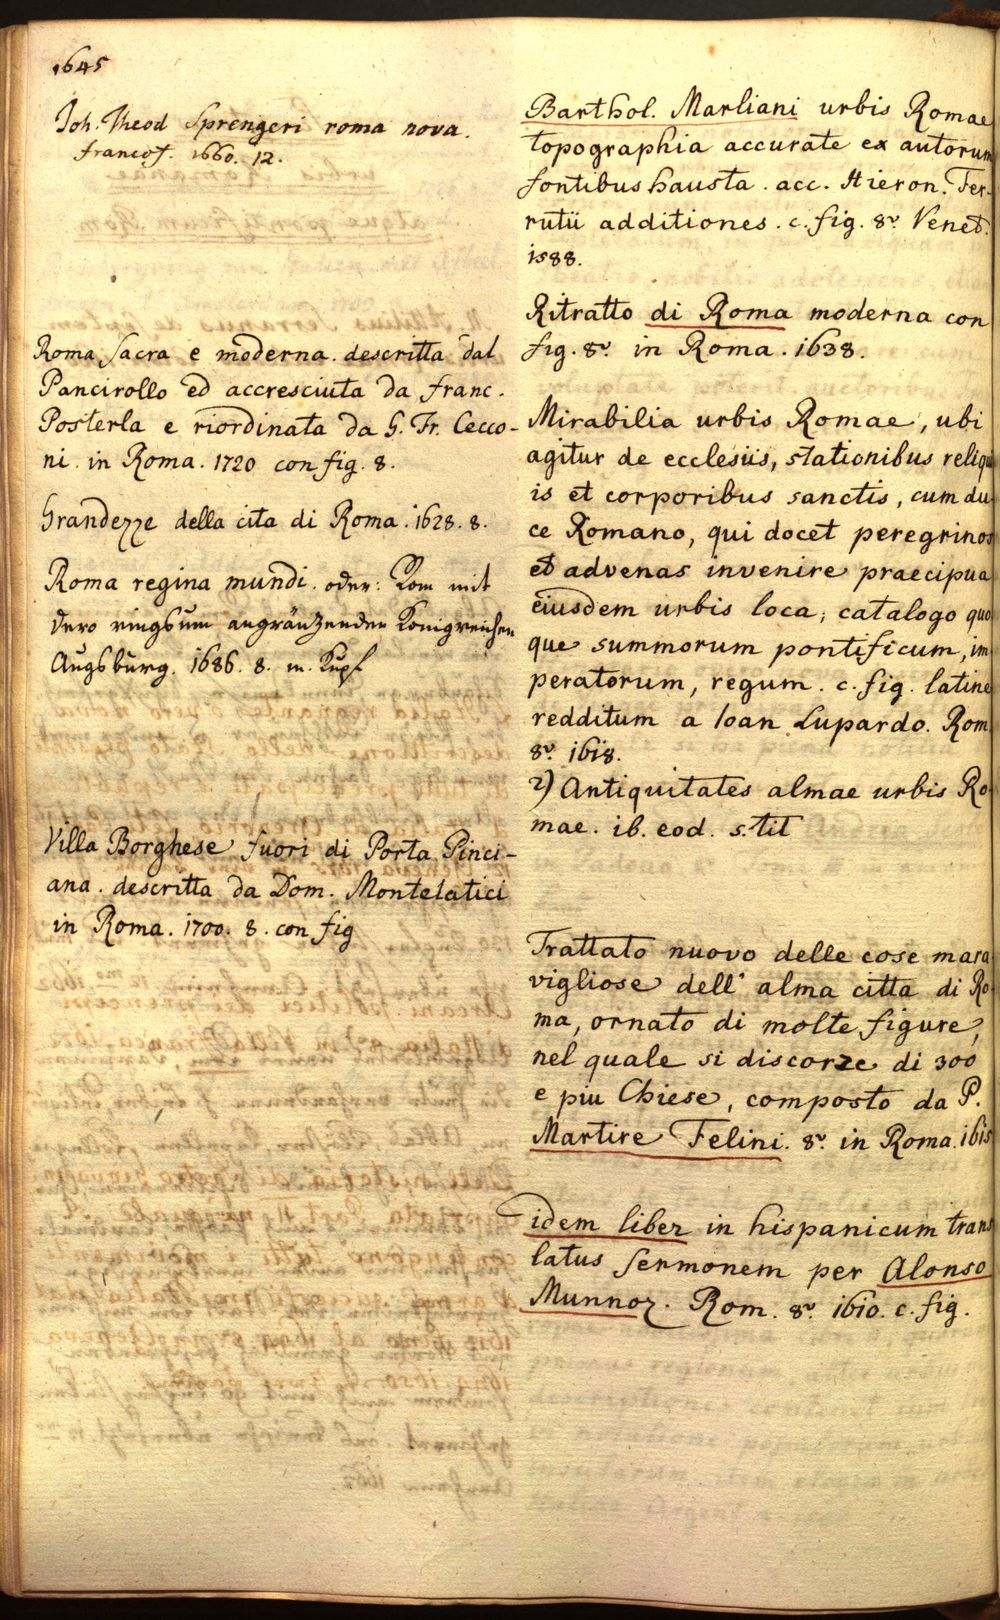 1645
Joh. Theod Sprengeri roma nova.
francof. 1660. 12.
Roma Sacra e moderna. descritta dal
Pancirollo ed accresciuta da franc.
Posterla e riordinata da G. Fr. Cecco-
ni. in Roma. 1720 con fig. 8.
Grandezze della cita di Roma. 1628. 8.
Roma regina mundi. oder: Rom mit
dero ringsum angränzenden Königreichen
Augsburg. 1686. 8. m. Kupf
Villa Borghese fuori di Porta Pinci-
ana. descritta da Dom. Montelatici
in Roma. 1700. 8. con fig
Barthol. Marliani urbis Romae
topographia accurate ex autorum
fontibus hausta. acc. Hieron. Fer-
rutii additiones. c. fig. 8v. Venet.
1588.
Ritratto di Roma moderna con
fig. 8v. in Roma. 1638.
Mirabilia urbis Romae, ubi
agitur de ecclesiis, stationibus reliqu
is et corporibus sanctis, cum du
ce Romano, qui docet peregrinos
et advenas invenire praecipua
eiusdem urbis loca, catalogo quo
que summorum pontificum, im
peratorum, regum. c. fig. latine
redditum a Ioan Lupardo. Rom
8v. 1618.
2) Antiquitates almae urbis Ro-
mae. ib. eod. s. tit
Trattato nuovo delle cose mara
vigliose dell' alma citta di Ro-
ma, ornato di molte figure,
nel quale si discorze di 300
e piu Chiese, composto da P.
Martire Felini. 8v. in Roma. 1615
idem liber in hispanicum trans
latus sermonem per Alonso
Munnoz. Rom. 8v. 1610. c. fig.